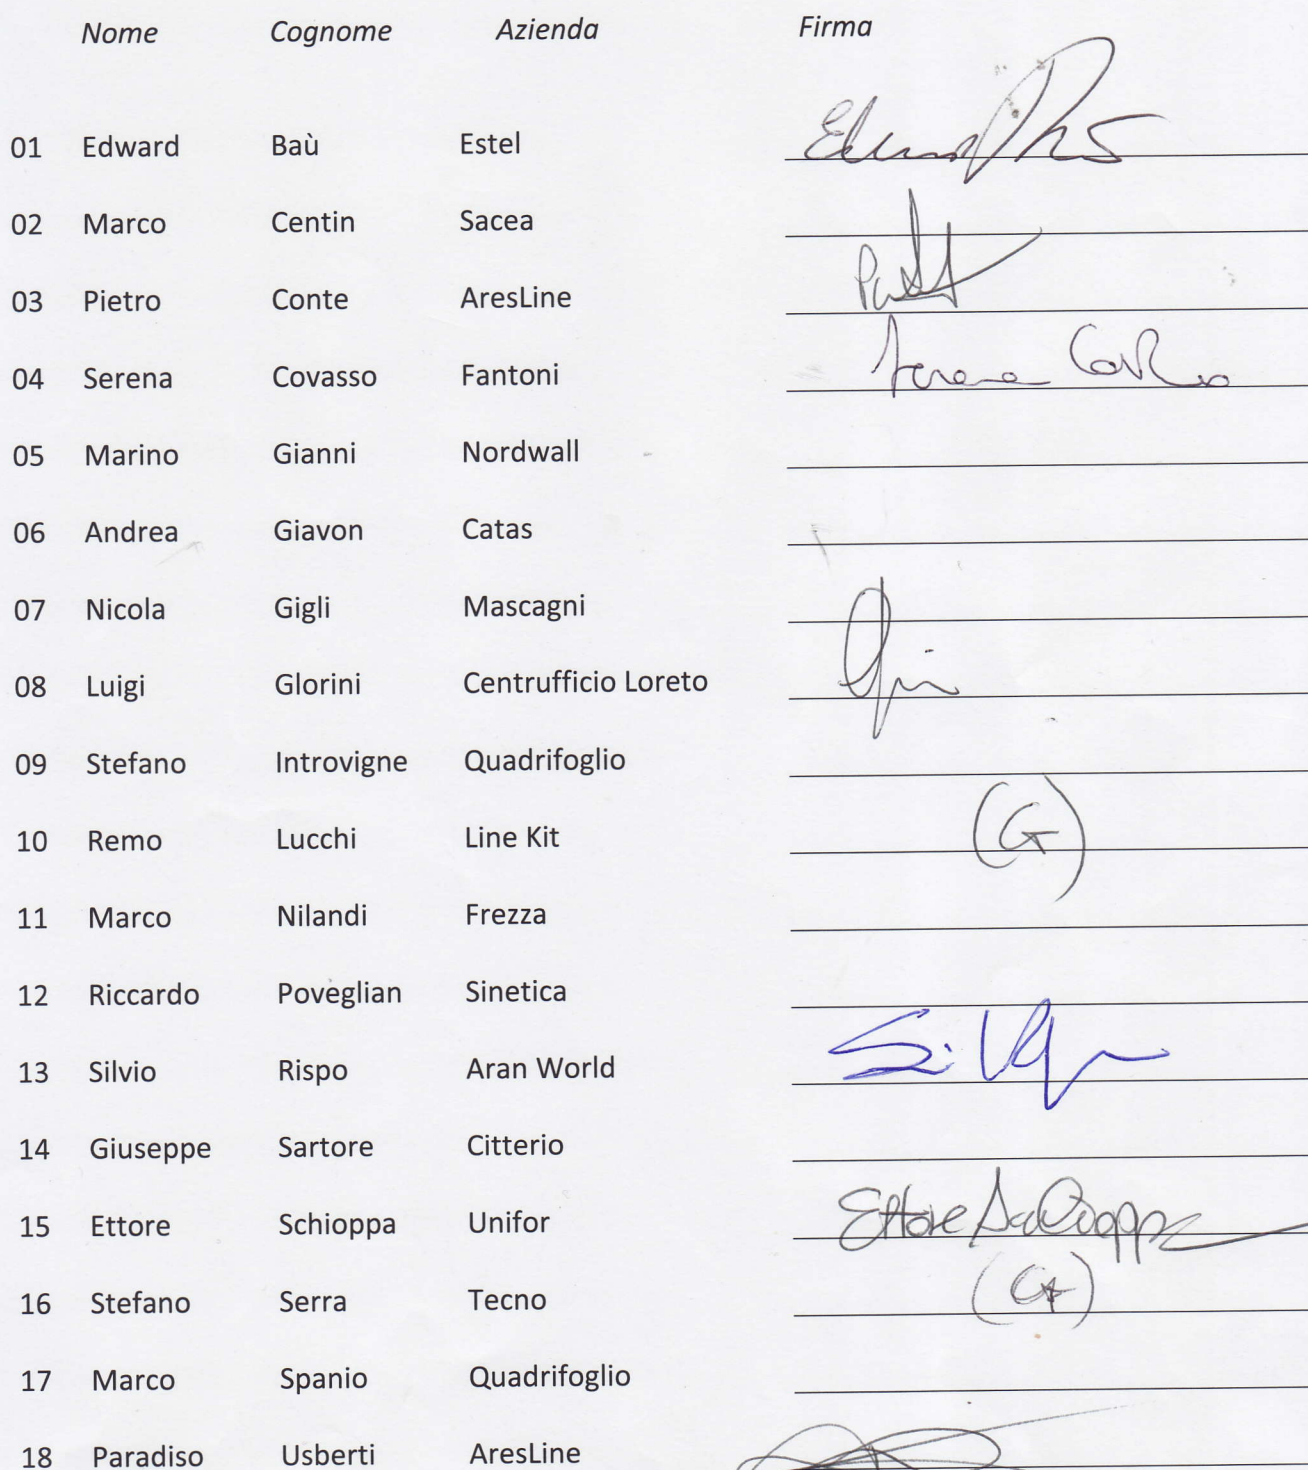 Nome Cognome Azienda Firma
01 Edward Baù Estel
02 Marco Centin Sacea
03 Pietro Conte AresLine
04 Serena Covasso Fantoni
05 Marino Gianni Nordwall
06 Andrea Giavon Catas
07 Nicola Gigli Mascagni
08 Luigi Glorini Centrufficio Loreto
09 Stefano Introvigne Quadrifoglio
10 Remo Lucchi Line Kit (G)
11 Marco Nilandi Frezza
12 Riccardo Poveglian Sinetica
13 Silvio Rispo Aran World
14 Giuseppe Sartore Citterio
15 Ettore Schioppa Unifor Ettore Schioppa
16 Stefano Serra Tecno (G)
17 Marco Spanio Quadrifoglio
18 Paradiso Usberti AresLine